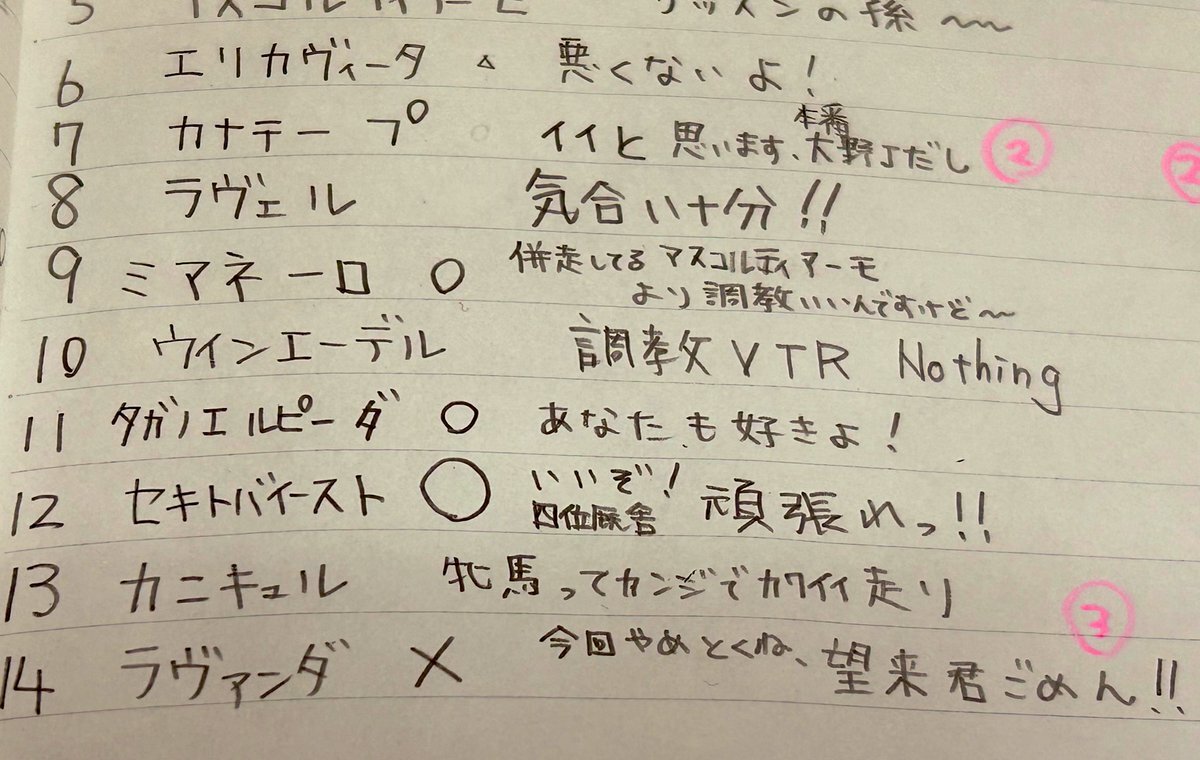 5 アスコルティアーモ の孫〜
6 エリカヴィータ △ 悪くないよ!
7 カナテープ ○ イイと思います、本番大野Jだし ②
8 ラヴェル 気合い十分!!
9 ミアネーロ ○ 併走してるアスコルティアーモ
より調教いいんですけど〜
10 ウインエーデル 調教VTR Nothing
11 タガノエルピーダ ○ あなたも好きよ!
12 セキトバイースト ○ いいぞ! 四位厩舎 頑張れっ!!
13 カニキュル 牝馬ってカンジでカワイイ走り
③
14 ラヴァンダ × 今回やめとくね、望来君ごめん!!